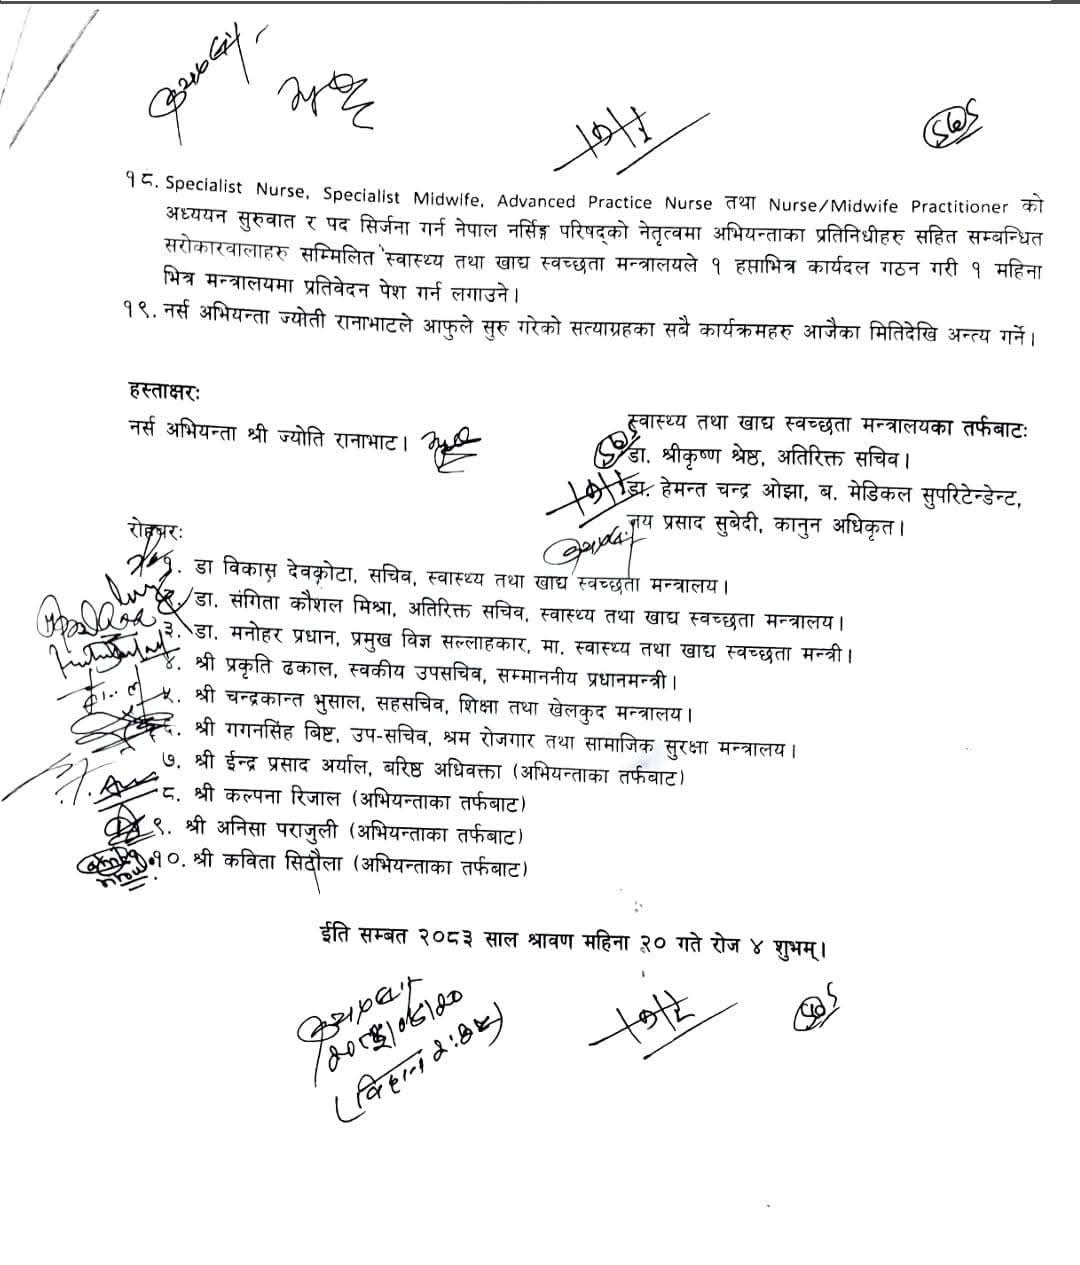 १८. Specialist Nurse, Specialist Midwife, Advanced Practice Nurse तथा Nurse/Midwife Practitioner को
अध्ययन सुरुवात र पद सिर्जना गर्न नेपाल नर्सिङ्ग परिषद्को नेतृत्वमा अभियन्ताका प्रतिनिधीहरु सहित सम्बन्धित
सरोकारवालाहरु सम्मिलित स्वास्थ्य तथा खाद्य स्वच्छता मन्त्रालयले १ हप्ताभित्र कार्यदल गठन गरी १ महिना
भित्र मन्त्रालयमा प्रतिवेदन पेश गर्न लगाउने।
१९. नर्स अभियन्ता ज्योती रानाभाटले आफुले सुरु गरेको सत्याग्रहका सबै कार्यक्रमहरु आजैका मितिदेखि अन्त्य गर्ने।
हस्ताक्षरः
नर्स अभियन्ता श्री ज्योति रानाभाट।
स्वास्थ्य तथा खाद्य स्वच्छता मन्त्रालयका तर्फबाटः
डा. श्रीकृष्ण श्रेष्ठ, अतिरिक्त सचिव।
डा. हेमन्त चन्द्र ओझा, ब. मेडिकल सुपरिटेन्डेन्ट,
जय प्रसाद सुबेदी, कानुन अधिकृत।
रोहबरः
१. डा विकास देवकोटा, सचिव, स्वास्थ्य तथा खाद्य स्वच्छता मन्त्रालय।
२. डा. संगिता कौशल मिश्रा, अतिरिक्त सचिव, स्वास्थ्य तथा खाद्य स्वच्छता मन्त्रालय।
३. डा. मनोहर प्रधान, प्रमुख विज्ञ सल्लाहकार, मा. स्वास्थ्य तथा खाद्य स्वच्छता मन्त्री।
४. श्री प्रकृति ढकाल, स्वकीय उपसचिव, सम्माननीय प्रधानमन्त्री।
५. श्री चन्द्रकान्त भुसाल, सहसचिव, शिक्षा तथा खेलकुद मन्त्रालय।
६. श्री गगनसिंह बिष्ट, उप-सचिव, श्रम रोजगार तथा सामाजिक सुरक्षा मन्त्रालय।
७. श्री ईन्द्र प्रसाद अर्याल, बरिष्ठ अधिवक्ता (अभियन्ताका तर्फबाट)
८. श्री कल्पना रिजाल (अभियन्ताका तर्फबाट)
९. श्री अनिसा पराजुली (अभियन्ताका तर्फबाट)
१०. श्री कविता सिटौला (अभियन्ताका तर्फबाट)
ईति सम्बत २०८३ साल श्रावण महिना २० गते रोज ४ शुभम्।
(विहान २:४५)